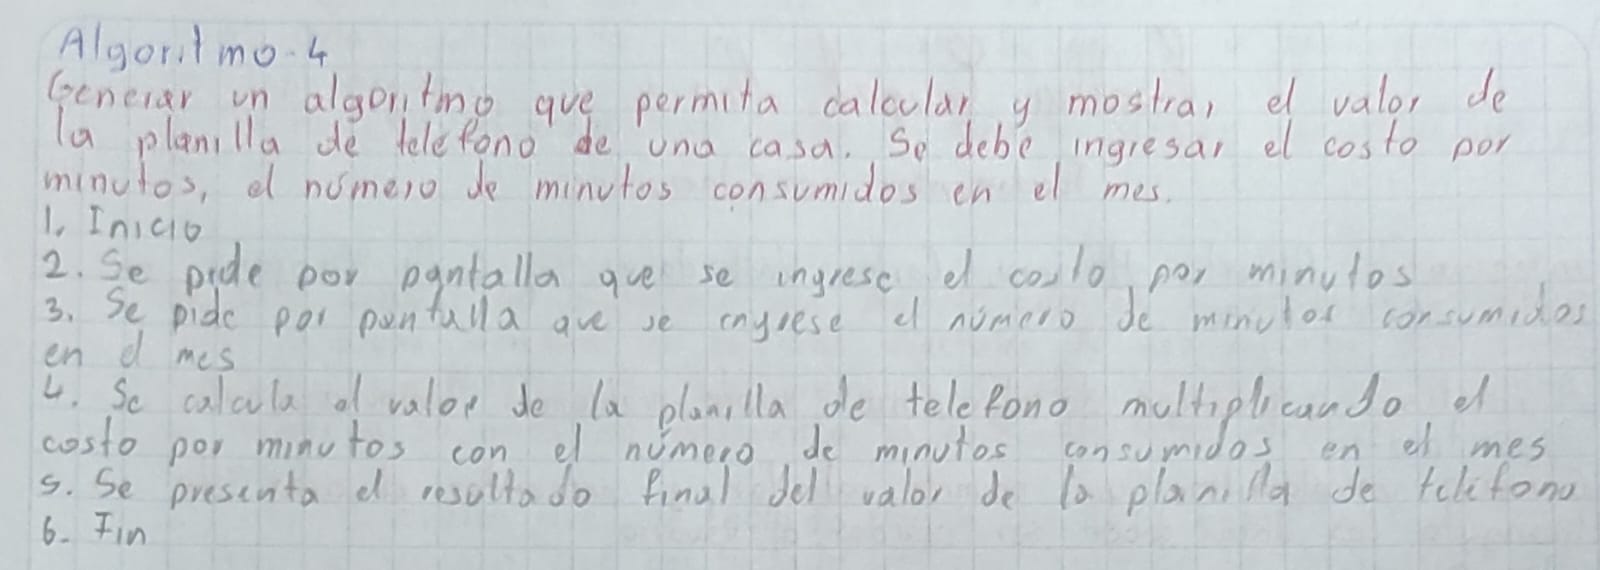 Algoritmo-4
Generar un algoritmo que permita calcular y mostrar el valor de
la planilla de telefono de una casa. Se debe ingresar el costo por
minutos, el número de minutos consumidos en el mes.
1. Inicio
2. Se pide por pantalla que se ingrese el costo por minutos
3. Se pide por pantalla que se ingrese el número de minutos consumidos
en el mes
4. Se calcula el valor de la planilla de telefono multiplicando el
costo por minutos con el número de minutos consumidos en el mes
5. Se presenta el resultado final del valor de la planilla de telefono
6. Fin